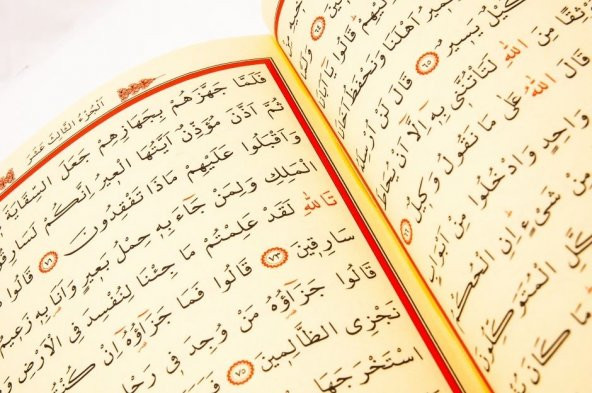 وَلَ
إِلَيْهِمْ قَالُوا يَا
نَمِيرُ أَهْلَنَا وَنَحْفَظُ
كَيْلٌ يَسِيرٌ ﴿٦٥﴾ قَالَ لَنْ
مِنَ اللهِ لَتَأْتُنَّنِي بِهِ إِلَّا أَنْ يُحَاطَ
قَالَ اللهُ عَلَى مَا نَقُولُ وَكِيلٌ ﴿٦٦﴾
وَاحِدٍ وَادْخُلُوا مِنْ أَبْوَابٍ
مِنْ شَيْءٍ إِنِ الْحُكْ
كَّلِ الْمُتَوَكِّلُونَ
مَا كَانَ
اَلْجُزْءُ الثَّالِثَ عَشَرَ
فَلَمَّا جَهَّزَهُمْ بِجَهَازِهِمْ جَعَلَ السِّقَايَةَ
ثُمَّ أَذَّنَ مُؤَذِّنٌ أَيَّتُهَا الْعِيرُ إِنَّكُمْ لَسَارِقُو
وَأَقْبَلُوا عَلَيْهِمْ مَاذَا تَفْقِدُونَ ﴿٧١﴾ قَالُوا
الْمَلِكِ وَلِمَنْ جَاءَ بِهِ حِمْلُ بَعِيرٍ وَأَنَا بِهِ زَعِيمٌ
تَاللهِ لَقَدْ عَلِمْتُمْ مَا جِئْنَا لِنُفْسِدَ فِي الْأَرْضِ وَ
سَارِقِينَ ﴿٧٣﴾ قَالُوا فَمَا جَزَاؤُهُ إِنْ كُنْتُ
قَالُوا جَزَاؤُهُ مَنْ وُجِدَ فِي رَحْلِ
نَجْزِي الظَّالِمِينَ ﴿٧٥﴾
اسْتَخْرَجَهَا